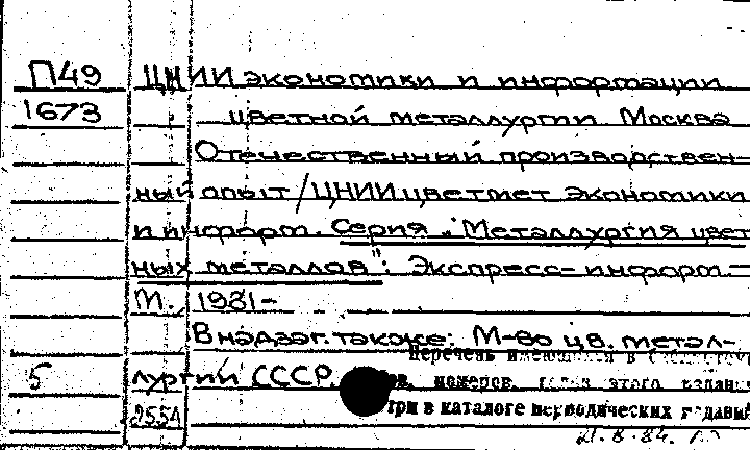 П49 ЦНИИ экономики и информации
1673 цветной металлургии Москва
Отечественный производствен-
ный опыт / ЦНИИцветмет экономики
и информ. Серия „Металлургия цвет
ных металлов": Экспресс-информ-
М. , 1981-
В надзаг. также: М-во цв. метал-
Перечень имеющихся в
5 лургии СССР. номеров, этого издани
2554 три в каталоге периодических
21.8.84.